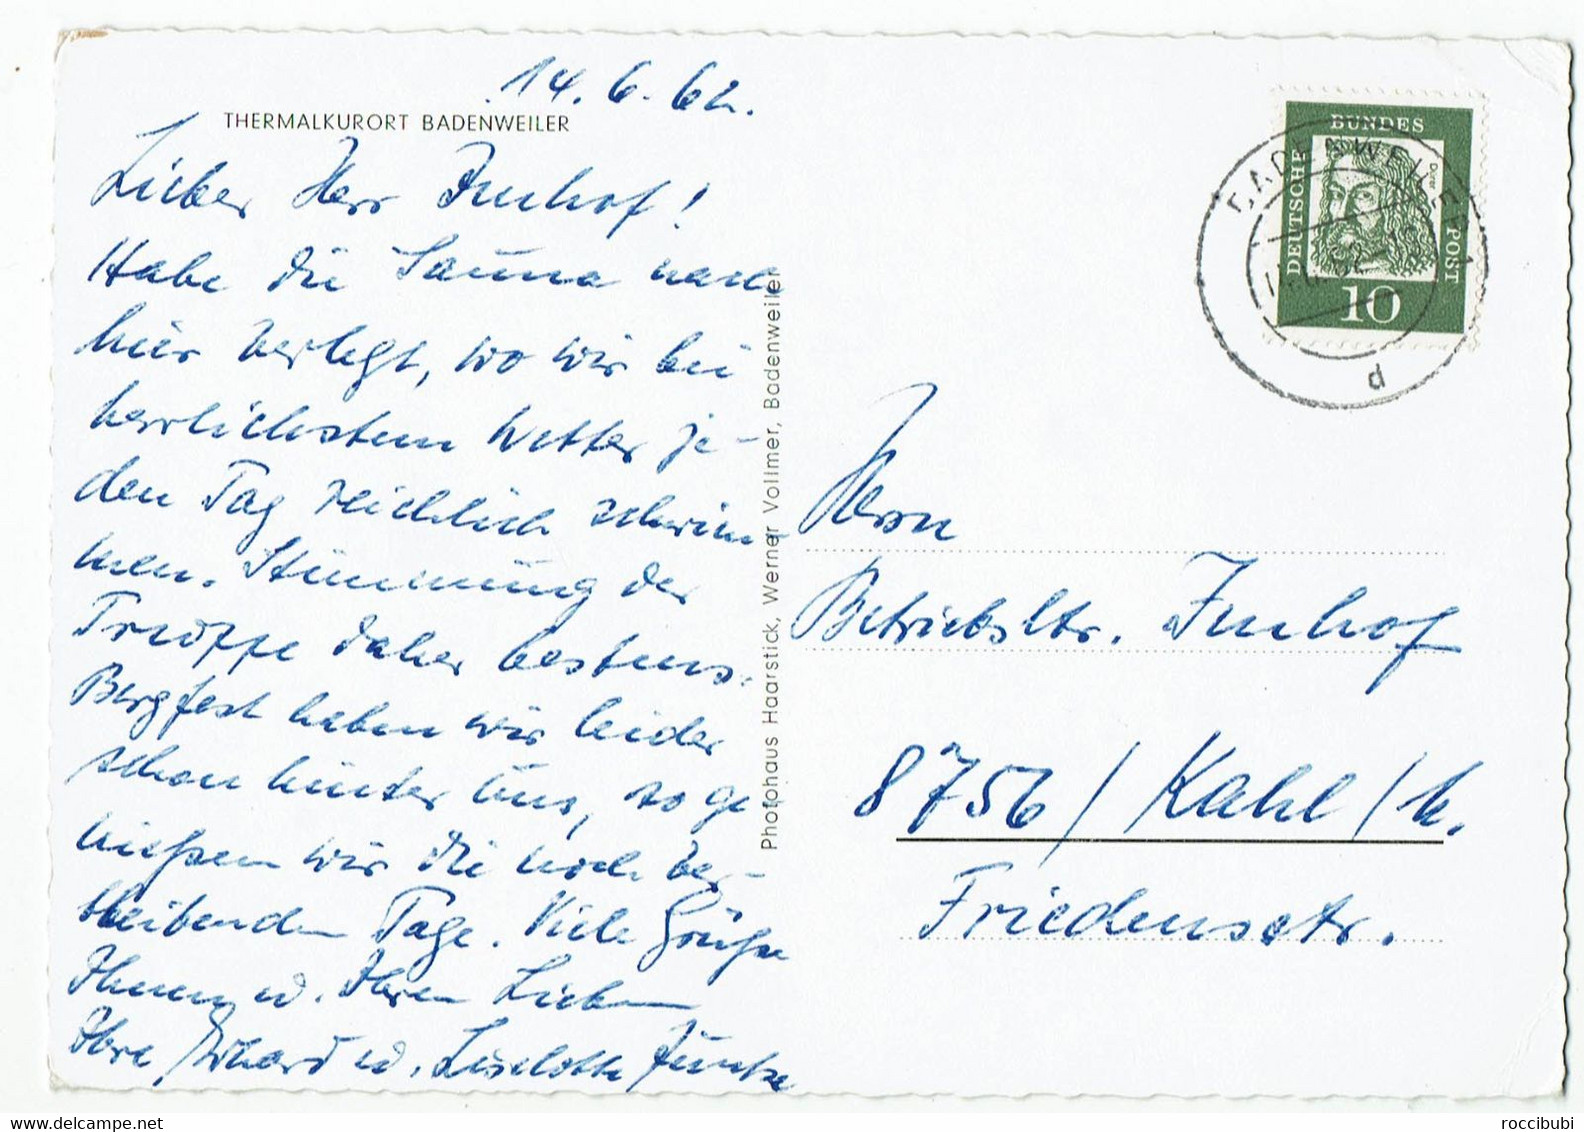 14.6.62.
THERMALKURORT BADENWEILER
Lieber Herr Imhof!
Habe die Sauna nach
hier verlegt, wo wir bei
herrlichstem Wetter je-
den Tag reichlich schwim-
men. Stimmung der
Truppe daher bestens.
Bergfest haben wir leider
schon hinter uns, so ge-
nießen wir die noch ver-
bleibenden Tage. Viele Grüße
Ihnen u. Ihren Lieben
Ihre Erhard u. Liselotte
Photohaus Haarstick, Werner Vollmer, Badenweiler
DEUTSCHE
BUNDES
POST
Dürer
10
BADENWEILER 1
d
Herrn
Betriebsltr. Imhof
8756/Kahl/M.
Friedensstr.
roccibubi